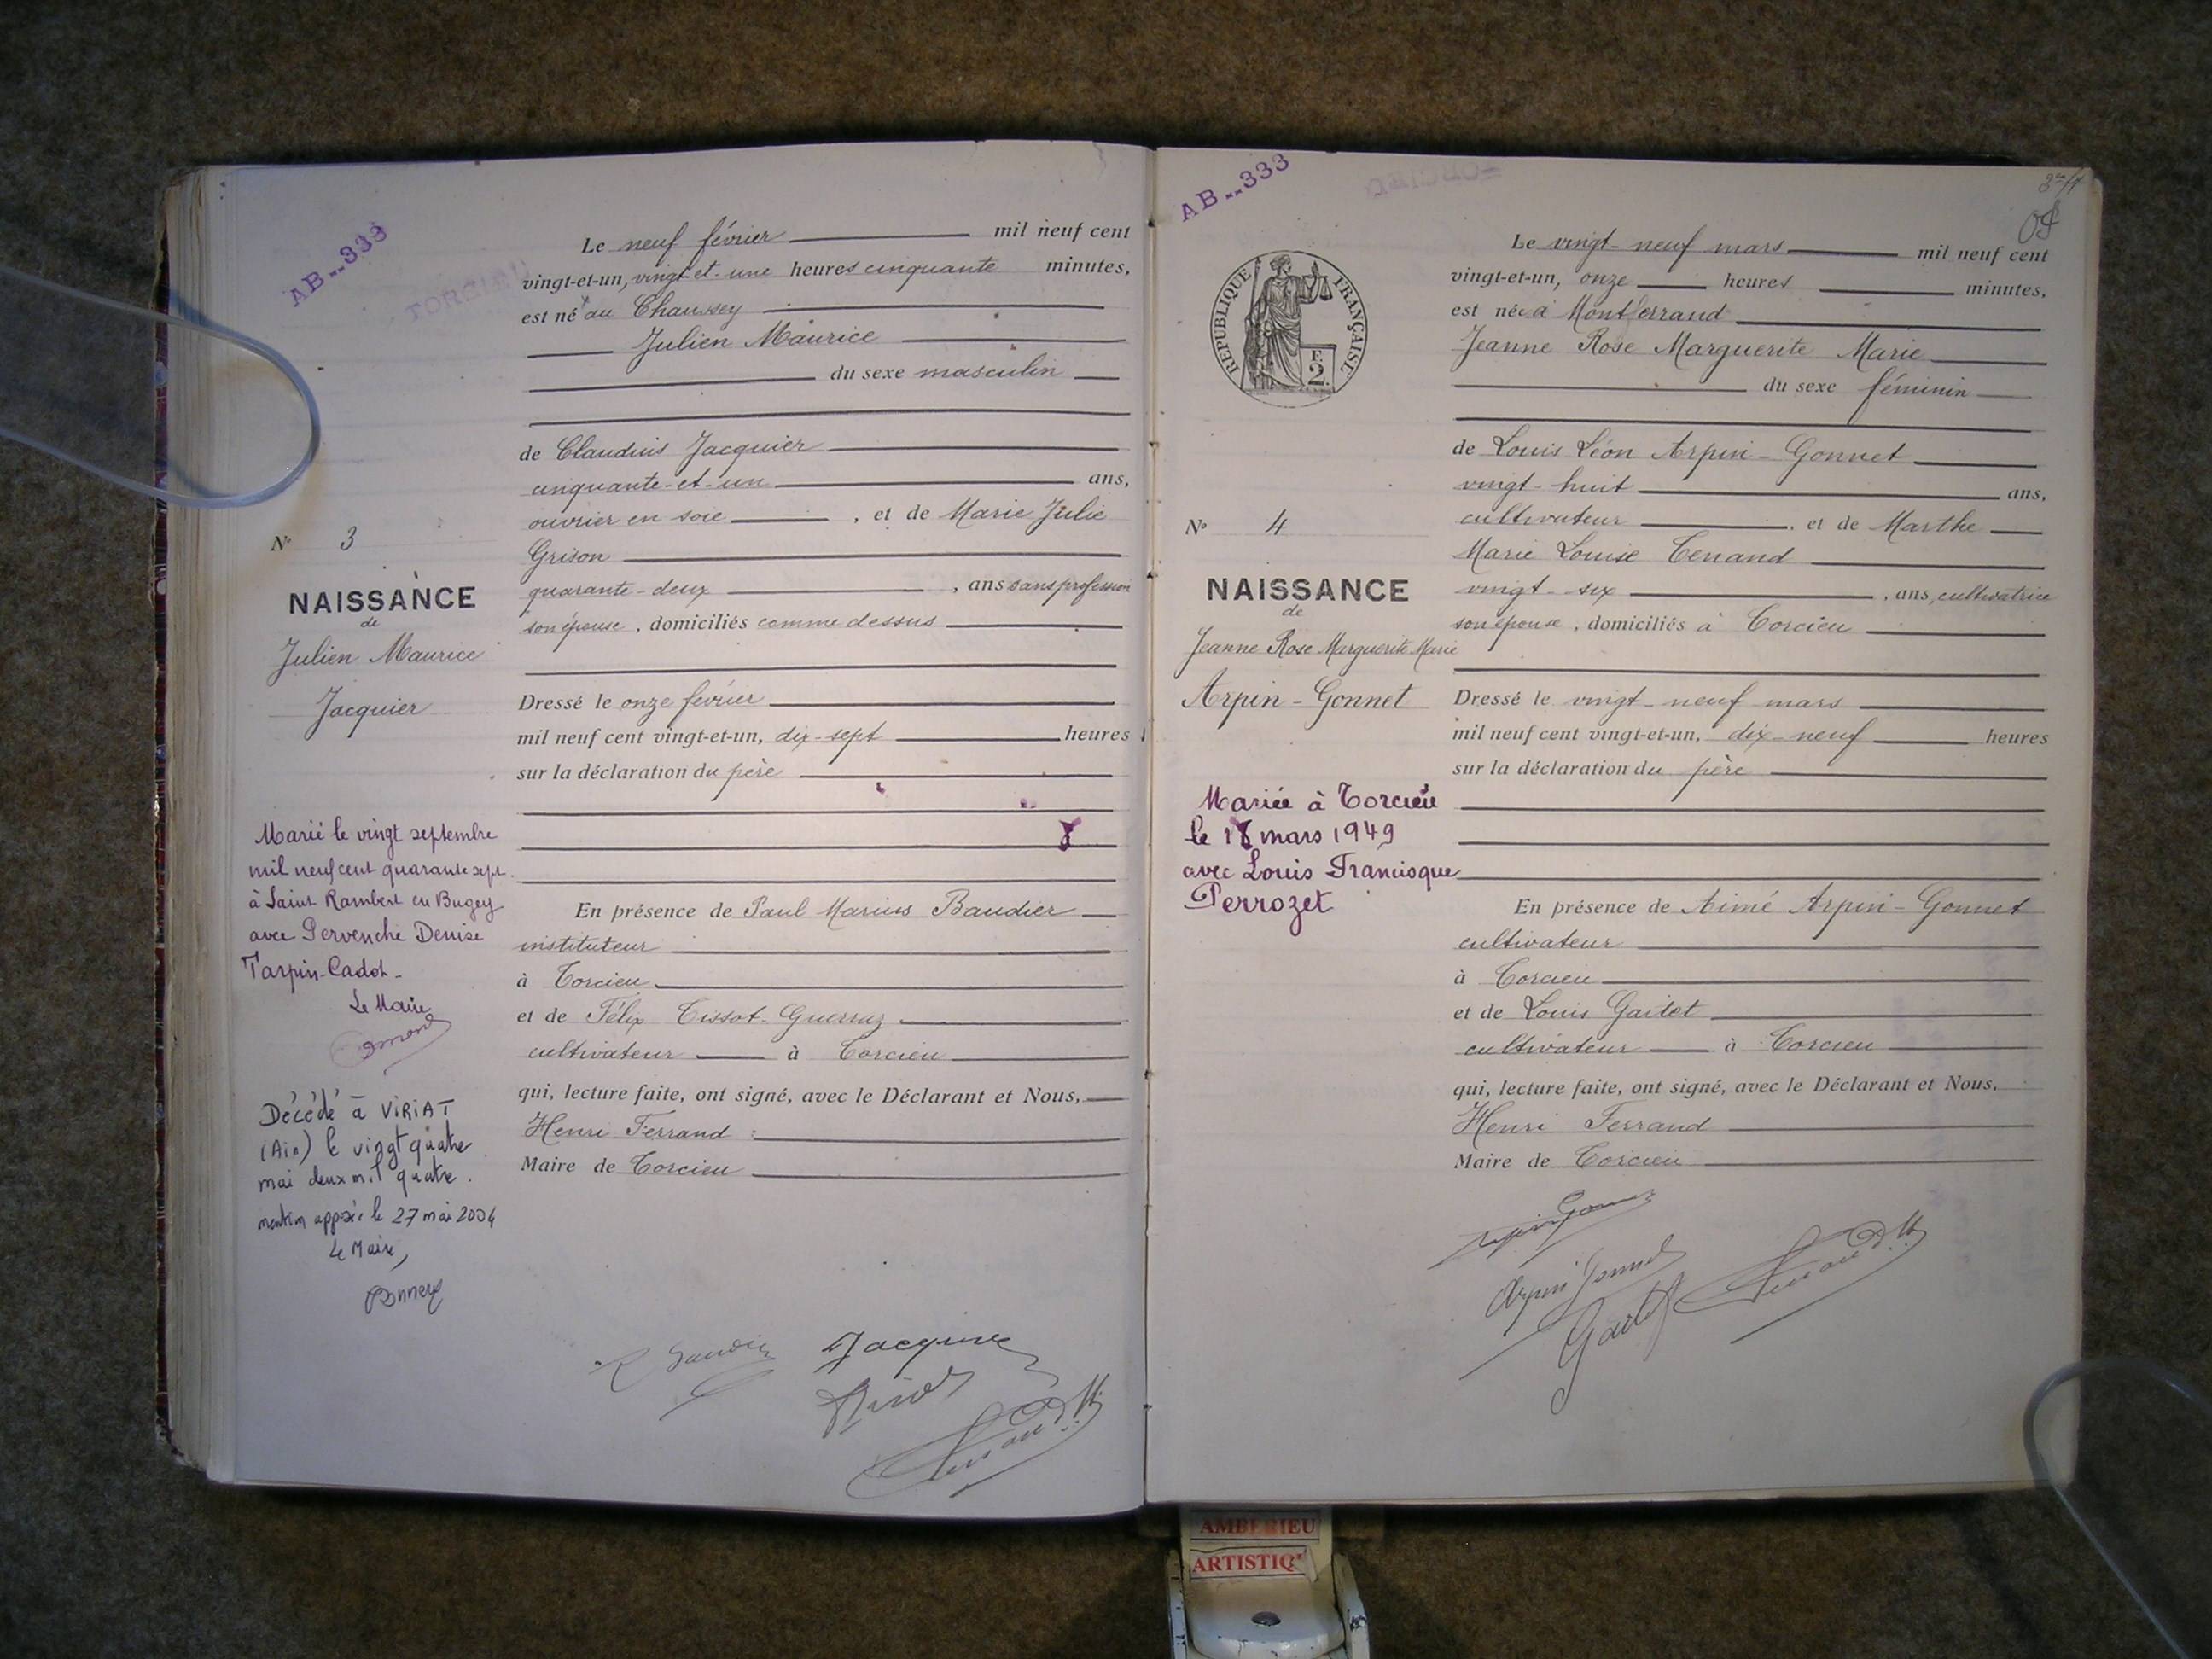 AB..333
TORCIEU
Le neuf février mil neuf cent
vingt-et-un, vingt-et-une heures cinquante minutes,
est né au Chaussey
Julien Maurice
du sexe masculin
de Claudius Jacquier
cinquante-et-un ans,
ouvrier en soie, et de Marie Julie
Grison
quarante-deux, ans sans profession
son épouse, domiciliés comme dessus
N° 3
NAISSANCE
de
Julien Maurice
Jacquier
Dressé le onze février
mil neuf cent vingt-et-un, dix-sept heures
sur la déclaration du père
Marié le vingt septembre
mil neuf cent quarante sept
à Saint Rambert en Bugey
avec Pervenche Denise
Tarpin-Cadot-
Le Maire
En présence de Paul Marius Baudier
instituteur
à Torcieu
et de Félix Tissot-Guerraz
cultivateur à Torcieu
qui, lecture faite, ont signé, avec le Déclarant et Nous,
Henri Ferrand
Maire de Torcieu
Décédé à VIRIAT
(Ain) le vingt quatre
mai deux mil quatre.
mention apposée le 27 mai 2004
Le Maire,
Jacquier
AB..333
RÉPUBLIQUE FRANÇAISE
F.
2.
Le vingt-neuf mars mil neuf cent
vingt-et-un, onze heures minutes,
est née à Montferrand
Jeanne Rose Marguerite Marie
du sexe féminin
de Louis Léon Arpin-Gonnet
vingt-huit ans,
cultivateur, et de Marthe
Marie Louise Tenand
vingt-six, ans, cultivatrice
son épouse, domiciliés à Torcieu
N° 4
NAISSANCE
de
Jeanne Rose Marguerite Marie
Arpin-Gonnet
Dressé le vingt-neuf mars
mil neuf cent vingt-et-un, dix-neuf heures
sur la déclaration du père
Mariée à Torcieu
le 18 mars 1949
avec Louis Francisque
Perrozet
En présence de Aimé Arpin-Gonnet
cultivateur
à Torcieu
et de Louis Gaitet
cultivateur à Torcieu
qui, lecture faite, ont signé, avec le Déclarant et Nous,
Henri Ferrand
Maire de Torcieu
Arpin Gonnet
Gaitet
AMBERIEU
ARTISTIQ